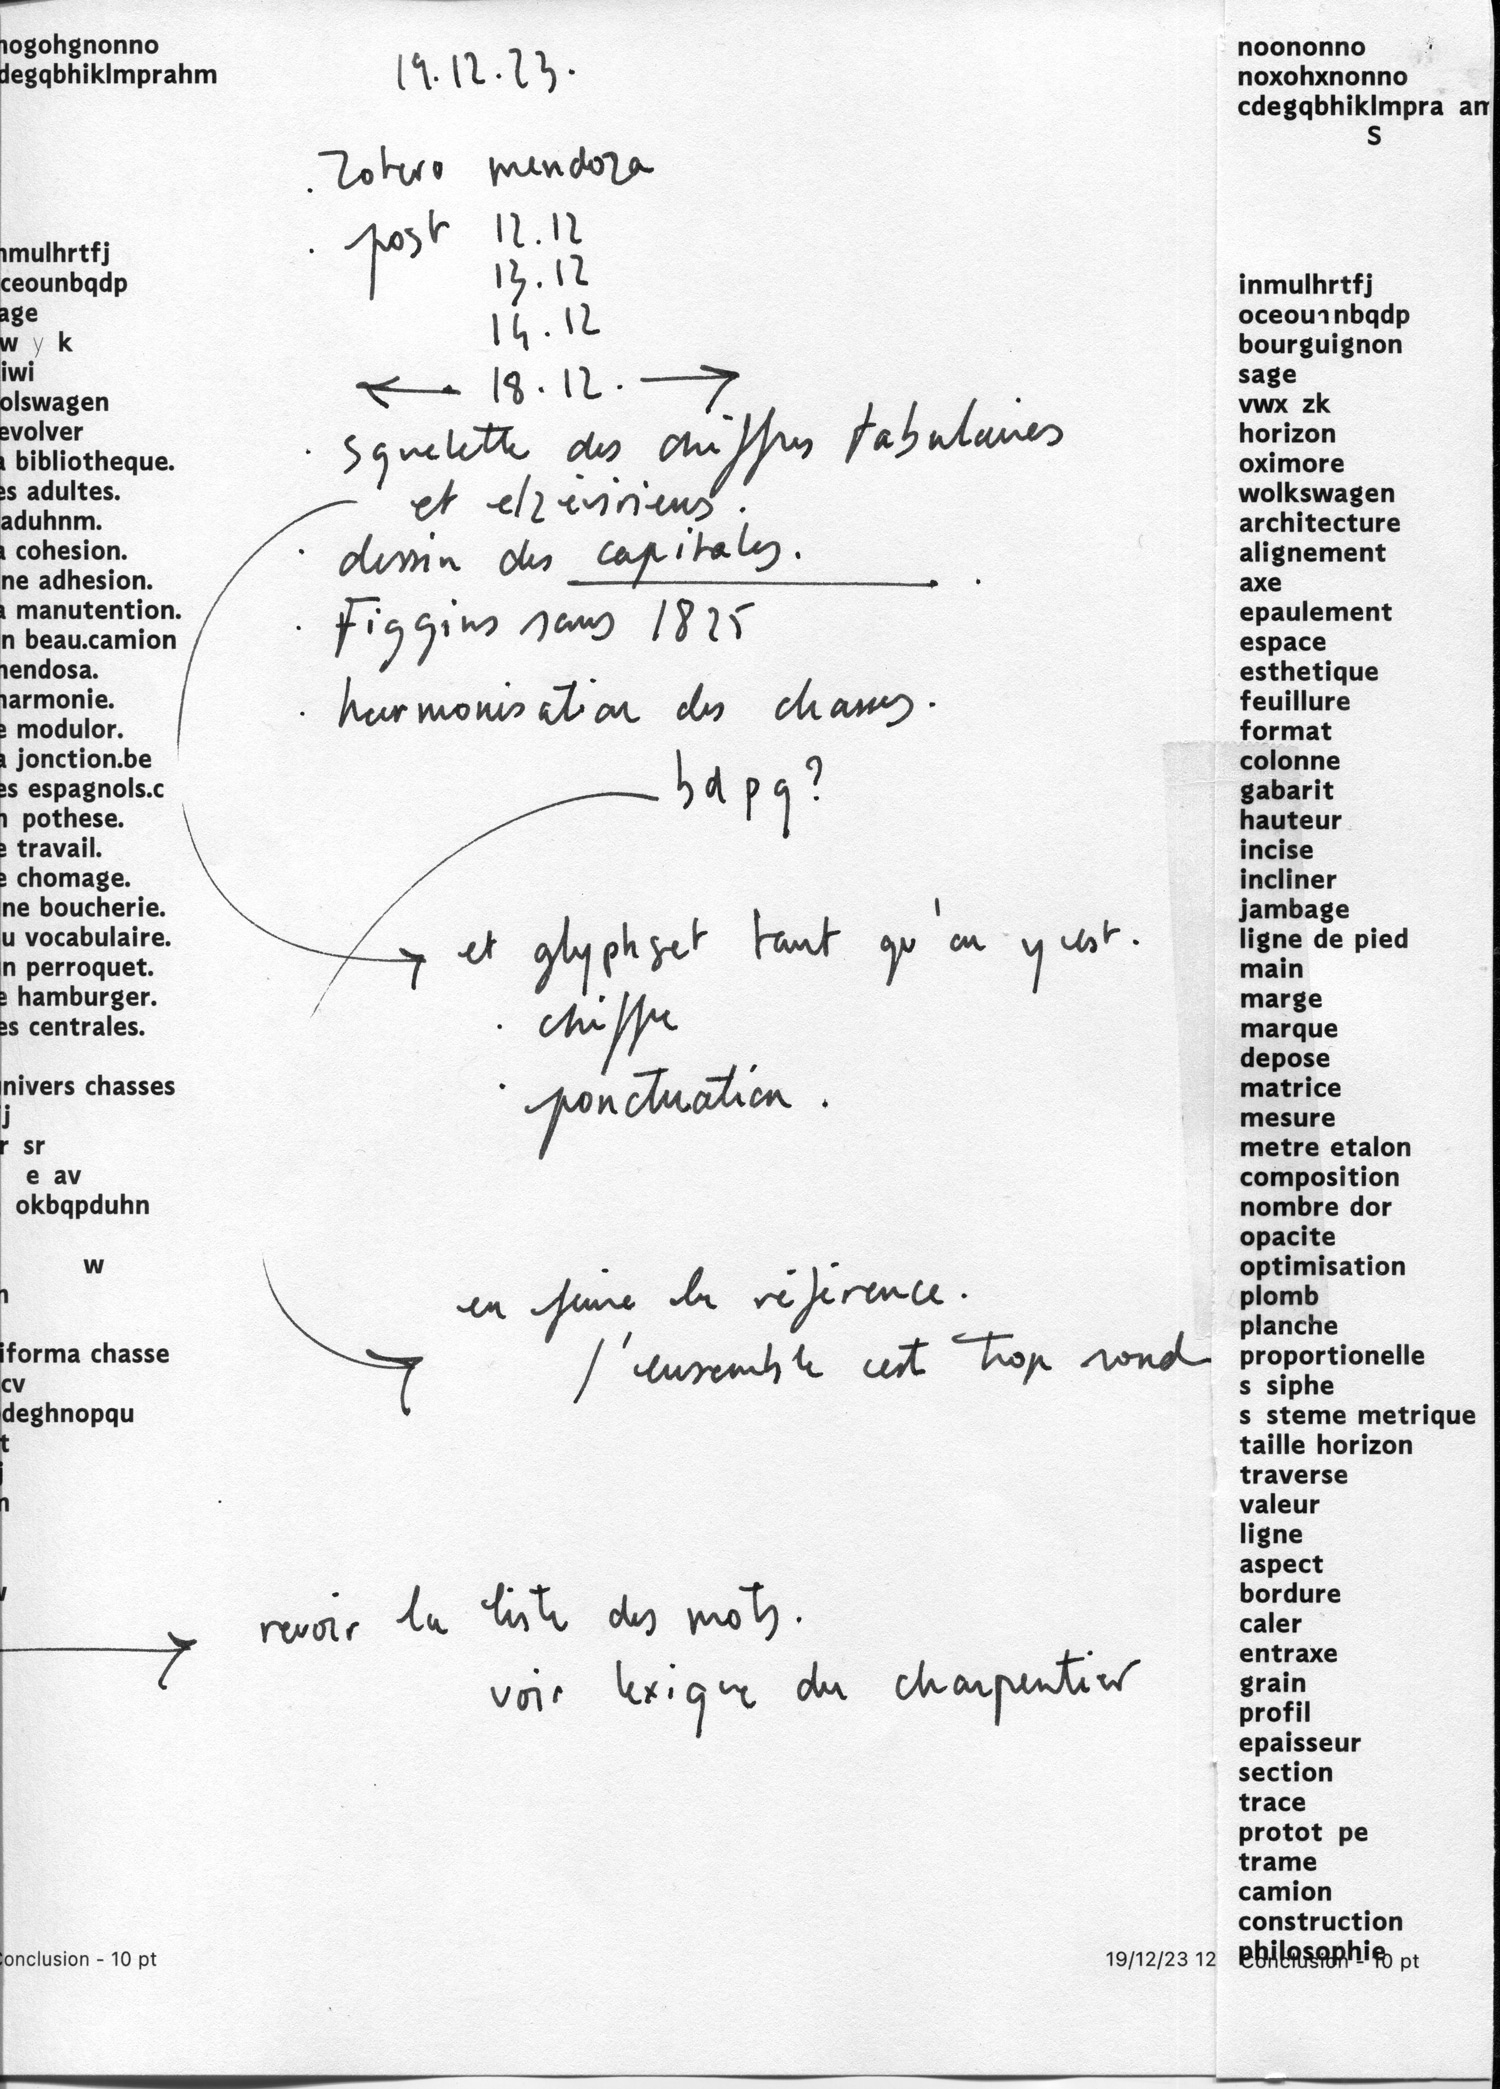 nogohgnonno
degqbhiklmprahm
nmulhrtfj
ceounbqdp
age
w y k
iwi
olswagen
evolver
a bibliotheque.
es adultes.
aduhnm.
a cohesion.
ne adhesion.
a manutention.
n beau.camion
mendosa.
harmonie.
e modulor.
a jonction.be
es espagnols.c
n pothese.
e travail.
e chomage.
ne boucherie.
u vocabulaire.
n perroquet.
e hamburger.
es centrales.
univers chasses
j
r sr
e av
okbqpduhn
w
n
iforma chasse
cv
deghnopqu
t
j
n
Conclusion - 10 pt
19.12.23.
. Zotero mendoza
. post 12.12
13.12
14.12
← 18.12. →
. squelette des chiffres tabulaires
et elzéviriens.
. dessin des capitales.
. Figgins sans 1825
. harmonisation des chasses.
b d p q ?
→ et glyphset tant qu'on y est.
. chiffre
. ponctuation.
en la référence.
l'ensemble est trop rond
→ revoir la liste des mots.
voir lexique du charpentier
19/12/23 12
noononno
noxohxnonno
cdegqbhiklmpra am
S
inmulhrtfj
oceou nbqdp
bourguignon
sage
vwx zk
horizon
oximore
wolkswagen
architecture
alignement
axe
epaulement
espace
esthetique
feuillure
format
colonne
gabarit
hauteur
incise
incliner
jambage
ligne de pied
main
marge
marque
depose
matrice
mesure
metre etalon
composition
nombre dor
opacite
optimisation
plomb
planche
proportionelle
s siphe
s steme metrique
taille horizon
traverse
valeur
ligne
aspect
bordure
caler
entraxe
grain
profil
epaisseur
section
trace
protot pe
trame
camion
construction
philosophie
Conclusion - 10 pt